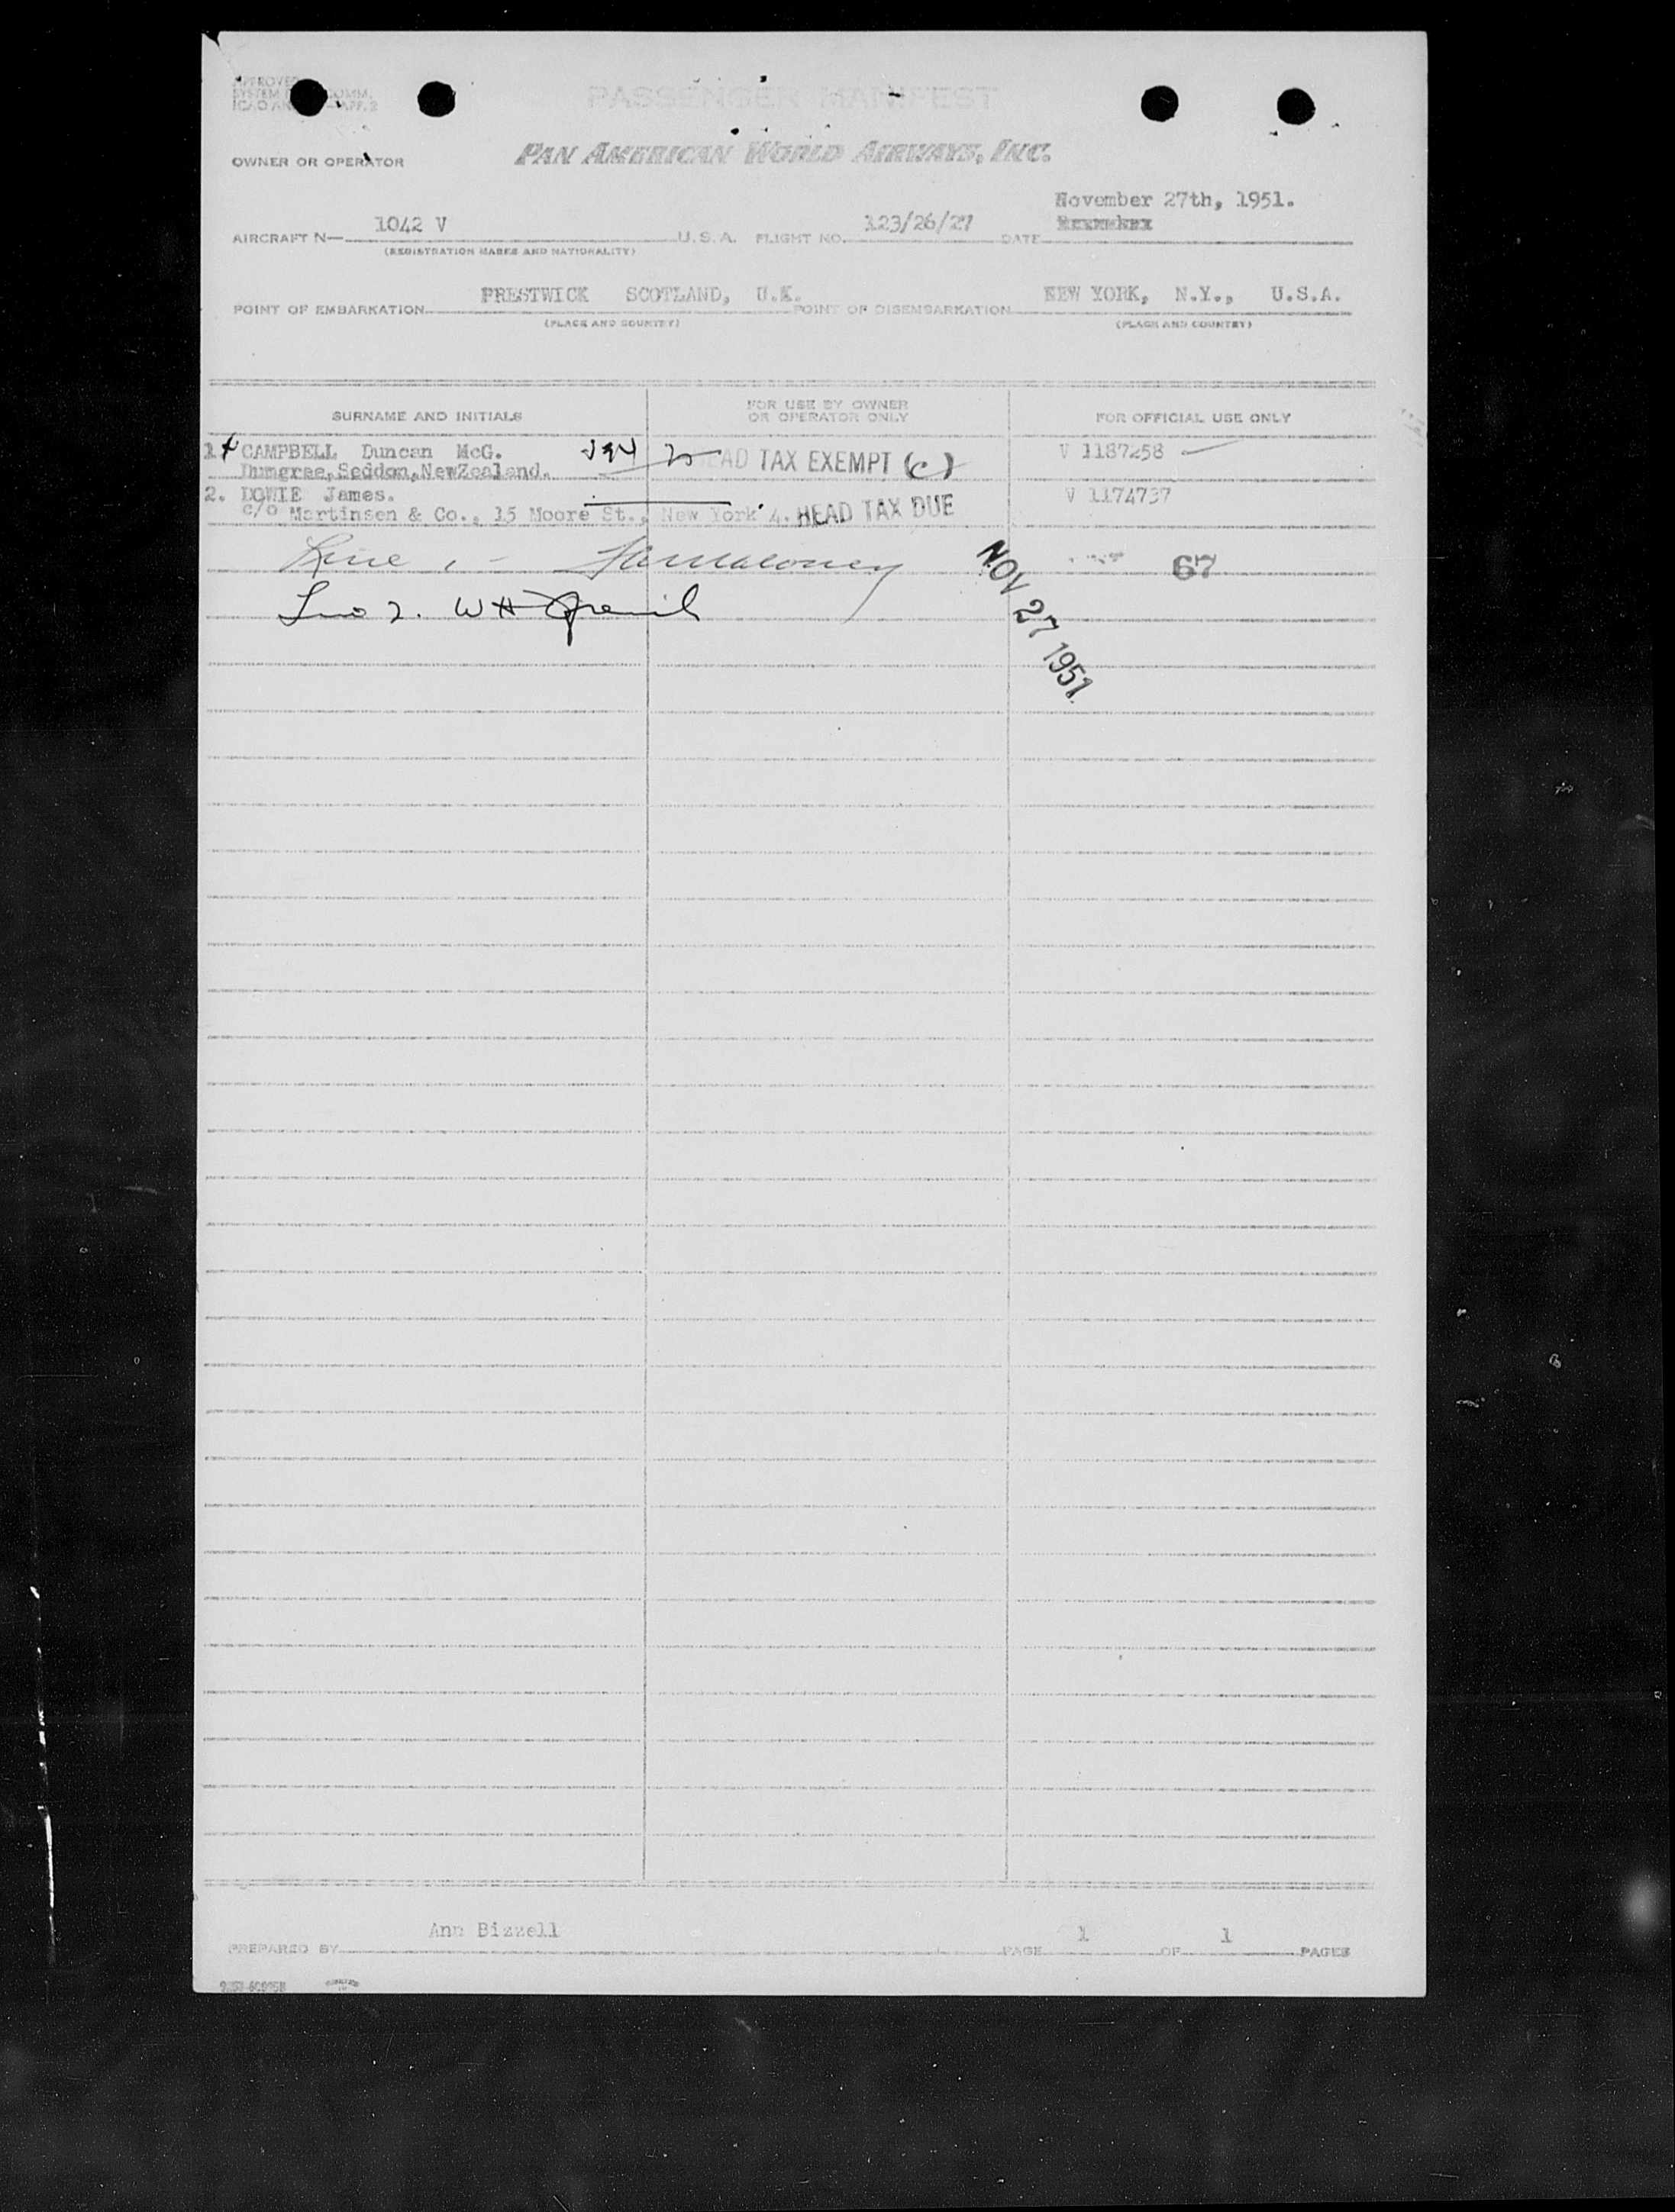 APPROVED
SYSTEM COMM.
ICAO AN APP. 2
PASSENGER MANIFEST
OWNER OR OPERATOR PAN AMERICAN WORLD AIRWAYS, INC.
November 27th, 1951.
AIRCRAFT N— 1042 V U.S.A. FLIGHT NO. 123/26/27 DATE
(REGISTRATION MARKS AND NATIONALITY)
POINT OF EMBARKATION PRESTWICK SCOTLAND, U.K. POINT OF DISEMBARKATION NEW YORK, N.Y., U.S.A.
(PLACE AND COUNTRY) (PLACE AND COUNTRY)
SURNAME AND INITIALS FOR USE BY OWNER OR OPERATOR ONLY FOR OFFICIAL USE ONLY
1. CAMPBELL Duncan McG. HEAD TAX EXEMPT (C) V 1187258
Dumgree, Seddon, NewZealand.
2. DOWIE James. HEAD TAX DUE V 1174737
c/o Martinsen & Co., 15 Moore St., New York 4.
Line 1 - Maloney 67
Line 2. WH
NOV 27 1951
Ann Bizzell
PREPARED BY PAGE 1 OF 1 PAGES